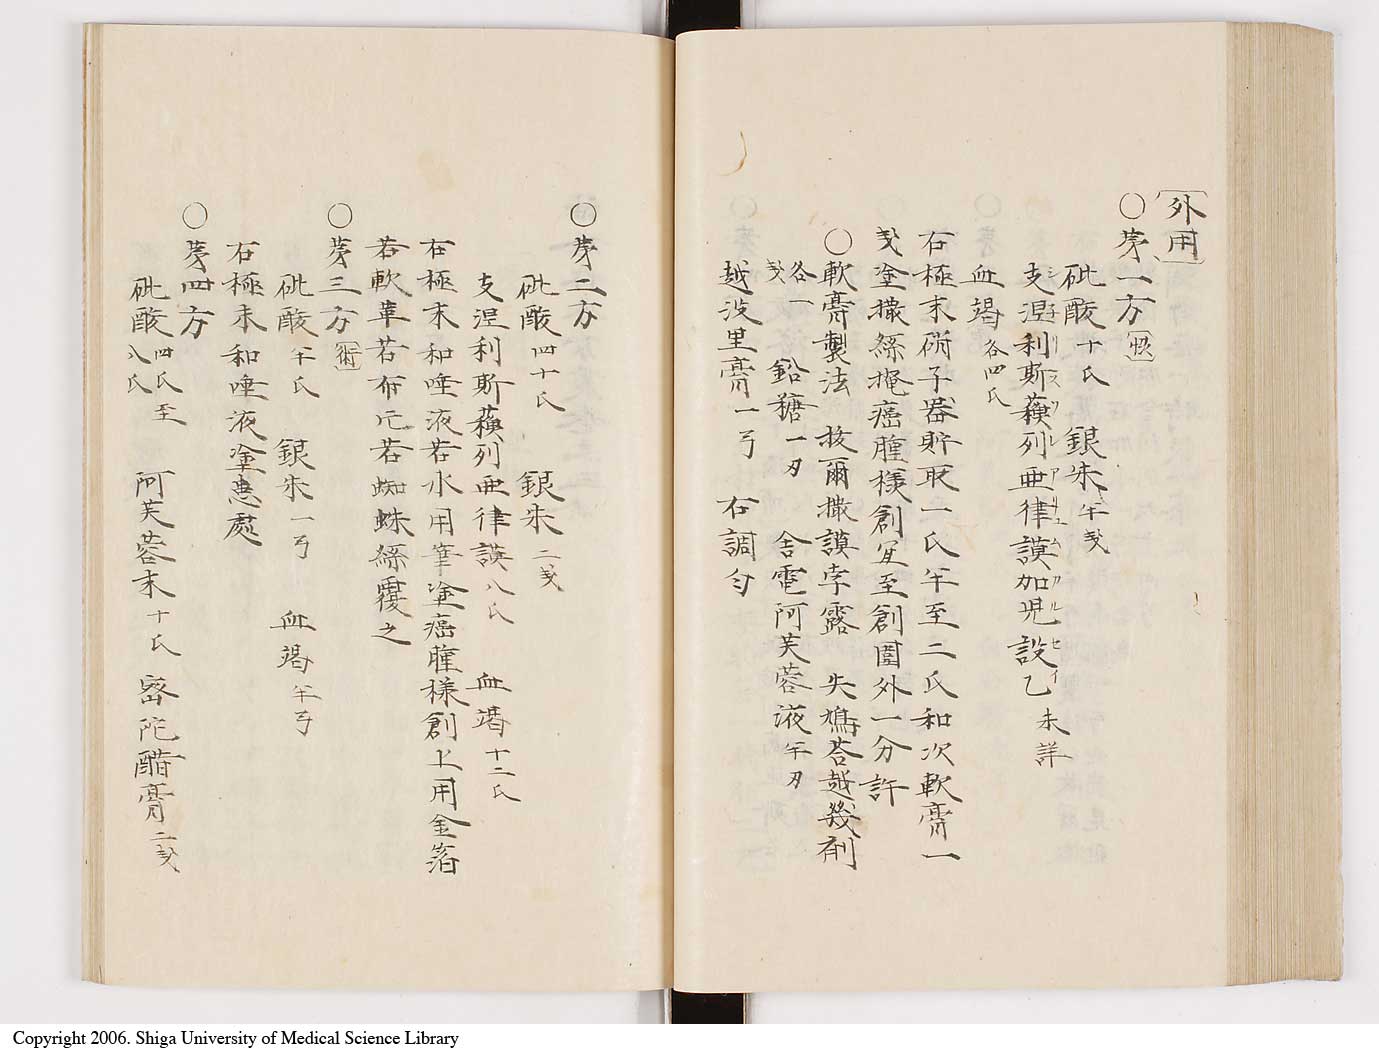 外用
○苐一方 㤙
砒酸十氏 銀朱半戔
支涅利斯蘓列亜律謨加児設乙未詳
シ子リスソレアリュムカルセイ
血竭各四氏
右極末硝子器貯取一氏半至二氏和次軟膏一
戔塗撒綵掩癌腫様創宜至創圍外一分許
○軟膏製法 拔爾撒謨孛露 失鴆荅越幾剤
各一戔 鉛糖一刃 舎電阿芙蓉液半刃
越没里膏一弓 右調匀
○苐二方
砒酸四十氏 銀朱二戔
支涅利斯蘓列亜律謨八氏 血竭十二氏
右極末和唾液若水用筆塗癌腫様創上用金箔
若軟革若布片若蜘蛛綵覆之
○苐三方 術
砒酸半氏 銀朱一弓 血竭半弓
右極末和唾液塗患處
○苐四方
砒酸四氏至八氏 阿芙蓉末十氏 密陀醋膏二戔
Copyright 2006. Shiga University of Medical Science Library